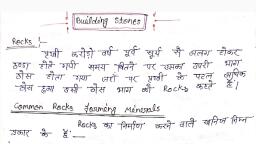 Building Stones
Rocks :-
पृथ्वी करोड़ो वर्ष पूर्व सूर्य से अलग होकर
ठण्डा होने लगी समय बितने पर उसका उपरी भाग
ठोस होता गया जहां पर पृथ्वी के पटल अधिक
ठोस हुआ उसी ठोस भाग को Rocks कहते है।
Common Rocks forming Minerals
Rocks का निर्माण करने वाली खनिज निम्न
प्रकार के हैं:-